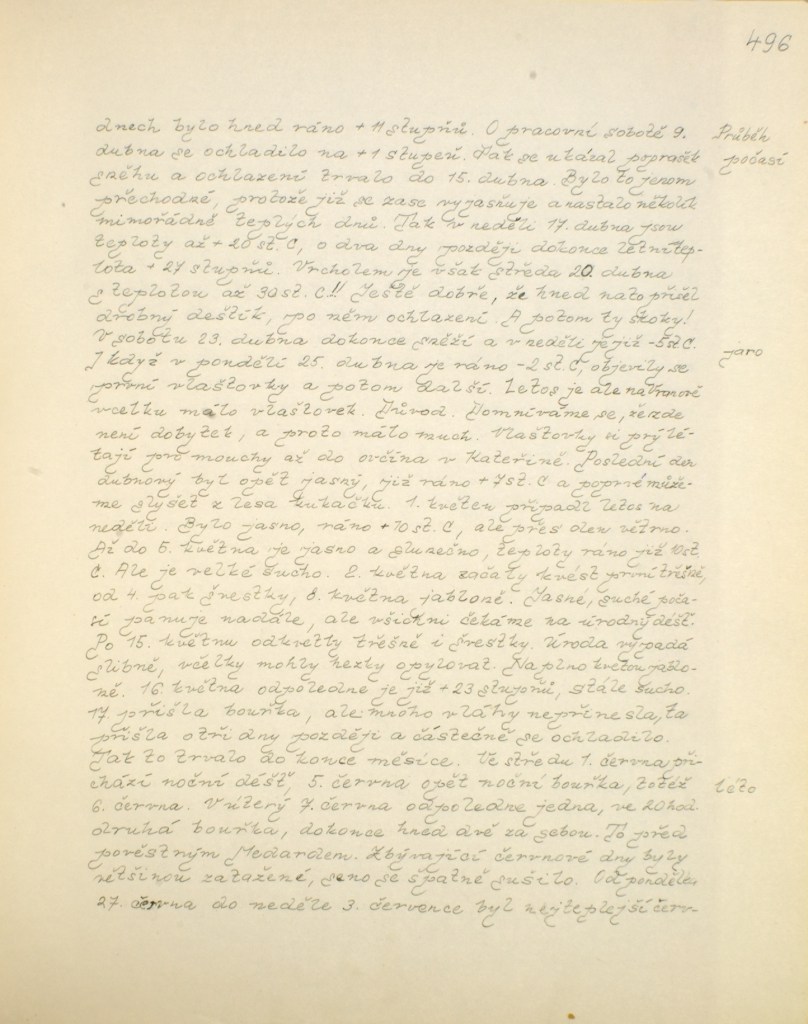 496
Průběh
počasí
dnech bylo hned ráno + 11 stupňů. O pracovní sobotě 9.
dubna se ochladilo na +1 stupeň. Pak se ukázal poprašek
sněhu a ochlazení trvalo do 15. dubna. Bylo to jenom
přechodné, protože již se zase vyjasňuje a nastalo několik
mimořádně teplých dnů. Tak v neděli 17. dubna jsou
teploty až + 20 st. C, o dva dny později dokonce letní tep-
lota + 27 stupňů. Vrcholem je však středa 20. dubna
s teplotou až 30 st. C!! Ještě dobře, že hned nato přišel
drobný deštík, po něm ochlazení. A potom ty skoky!
V sobotu 23. dubna dokonce sněží a v neděli je již -5 st C.
jaro
I když v pondělí 25. dubna je ráno -2 st. C, objevily se
první vlaštovky a potom další. Letos je ale na Vranově
vcelku málo vlaštovek. Důvod. Domníváme se, že zde
není dobytek, a proto málo much. Vlaštovky si prý lé-
tají pro mouchy až do ovčína v Kateřině. Poslední den
dubnový byl opět jasný, již ráno + 7 st. C a poprvé může-
me slyšet z lesa kukačku. 1. květen připadl letos na
neděli. Bylo jasno, ráno + 10 st. C, ale přes den větrno.
Až do 5. května je jasno a slunečno, teploty ráno již 10 st.
C. Ale je velké sucho. 2. května začaly kvést první třešně,
od 4. pak švestky, 8. května jabloně. Jasné, suché poča-
sí panuje nadále, ale všichni čekáme na úrodný déšť.
Po 15. květnu odkvetly třešně i švestky. Úroda vypadá
slibně, včelky mohly hezky opylovat. Naplno kvetou jablo-
ně. 16. května odpoledne je již + 23 stupňů, stále sucho.
17. přišla bouřka, ale mnoho vláhy nepřinesla, ta
přišla o tři dny později a částečně se ochladilo.
Tak to trvalo do konce měsíce. Ve středu 1. června při-
chází noční déšť, 5. června opět noční bouřka, totéž
léto
6. června. V úterý 7. června odpoledne jedna, ve 20 hod.
druhá bouřka, dokonce hned dvě za sebou. To před
pověstným Medardem. Zbývající červnové dny byly
většinou zatažené, seno se špatně sušilo. Od pondělka
27. června do neděle 3. července byl nejteplejší červ-